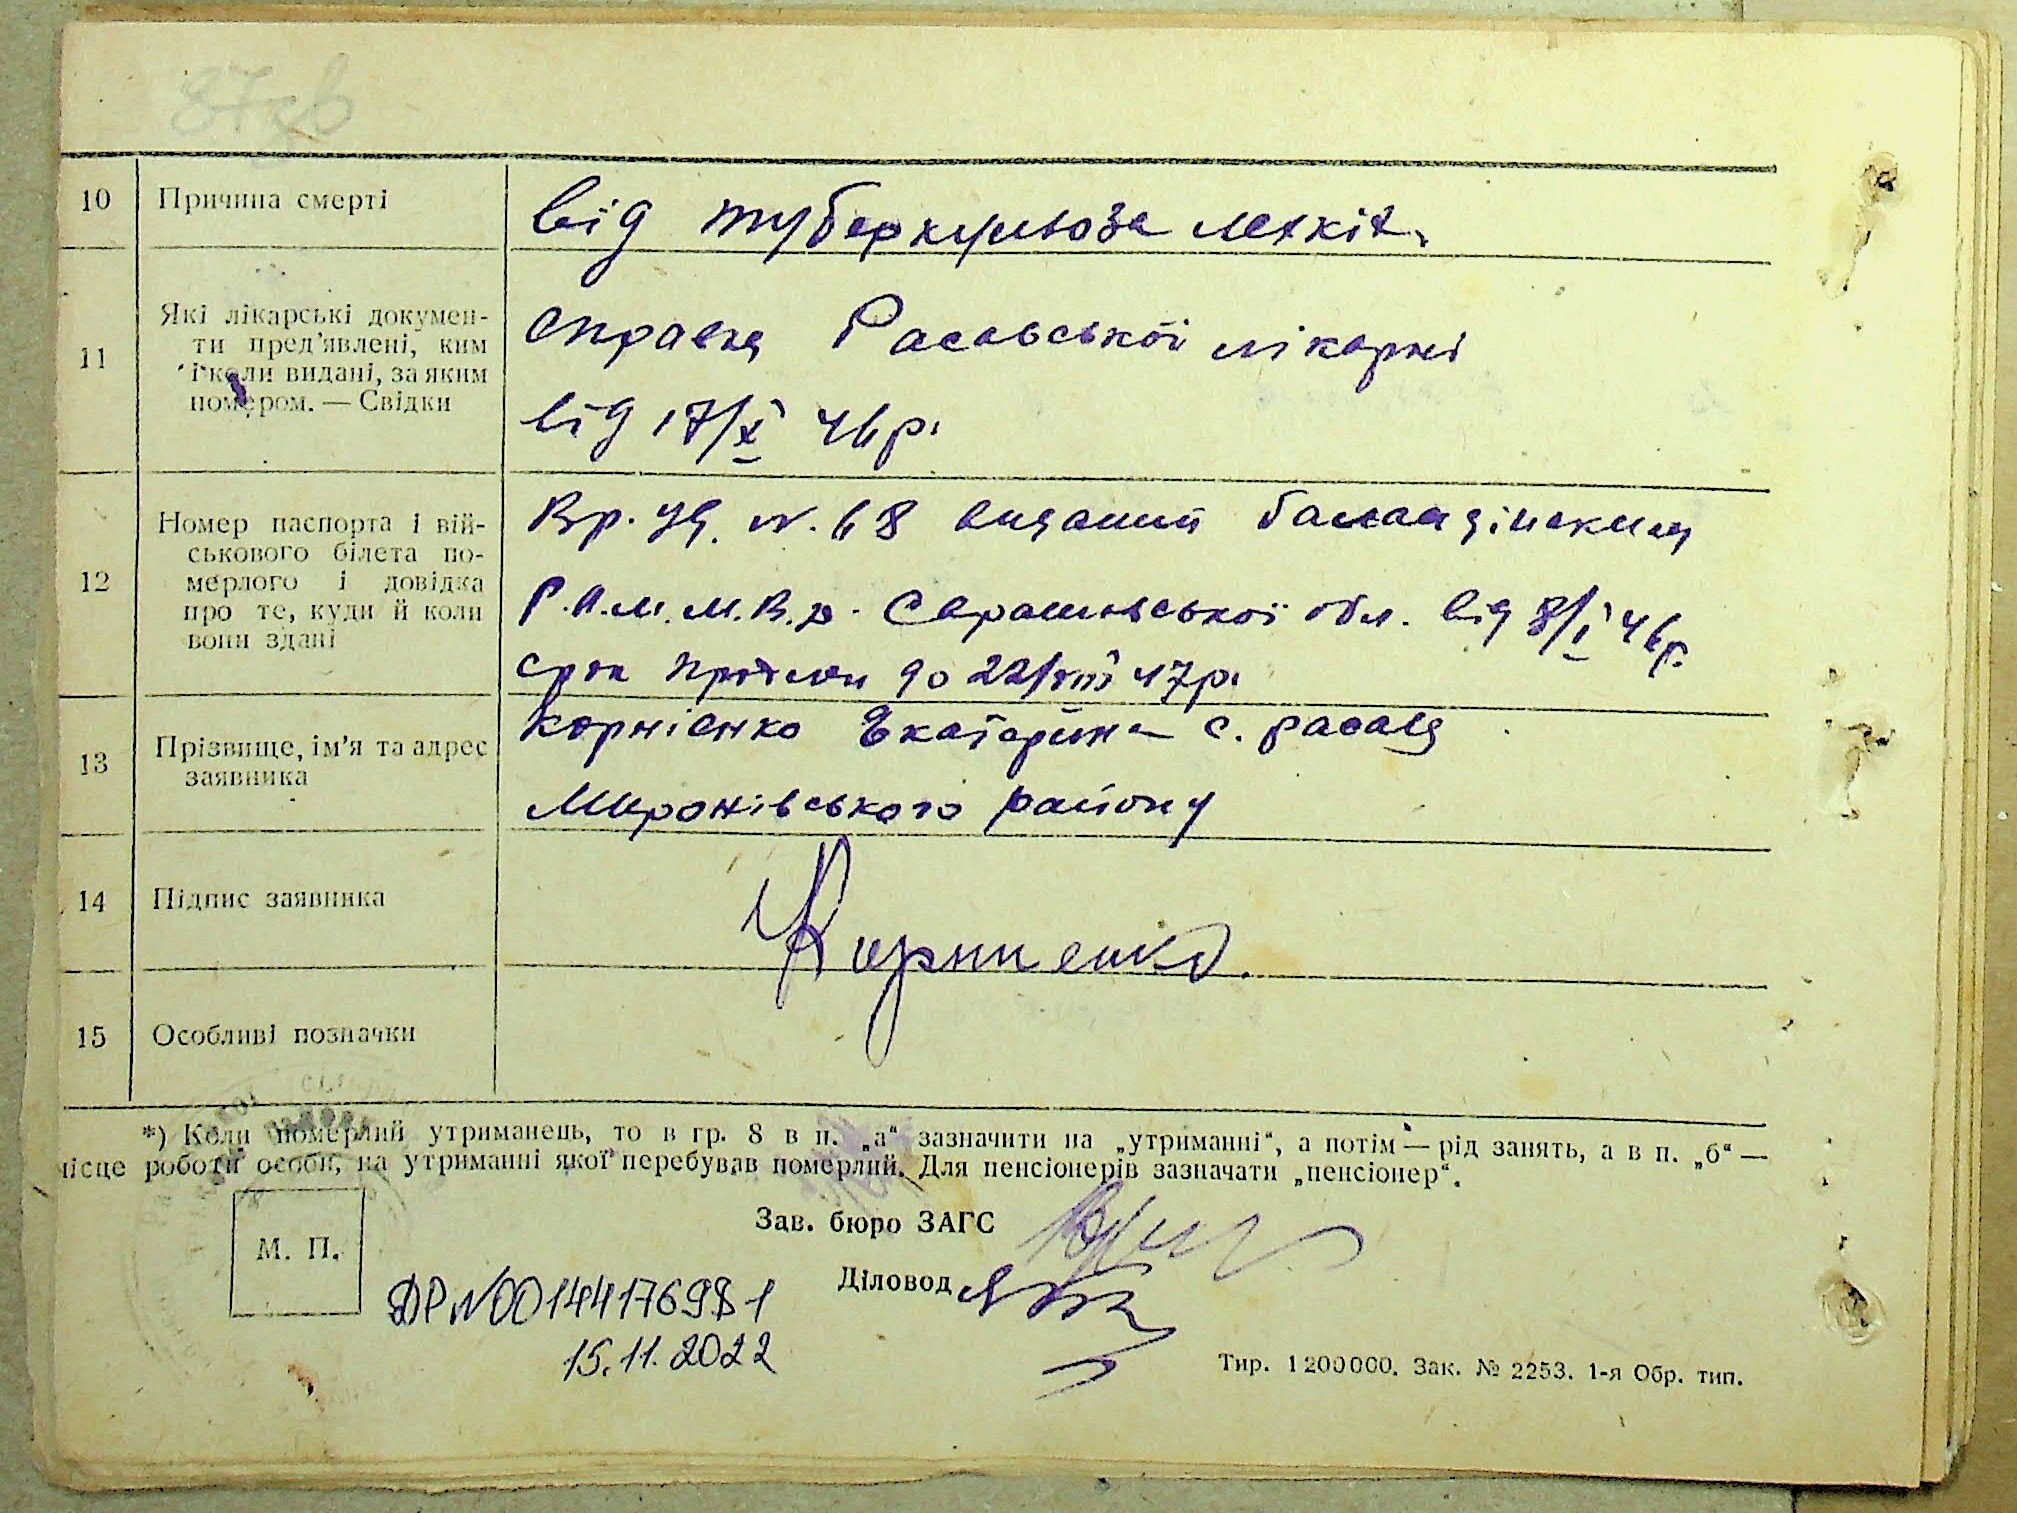 87зв
10 Причина смерті від туберкульоза легкіх.
11 Які лікарські докумен-
ти пред'явлені, ким
і коли видані, за яким
номером. — Свідки
справка Расавської лікарні
від 17/X 46 р.
12 Номер паспорта і вій-
ськового білета по-
мерлого і довідка
про те, куди й коли
вони здані
Вр. уд. N. 68 виданий баландінским
Р.О.М. М.В.Д. Саратовської обл. від 8/I 46 р.
срок продлен до 22/VIII 47 р.
13 Прізвище, ім'я та адрес
заявника
Корнієнко Екатерина с. расава
Миронівського району
14 Підпис заявника Корниенко.
15 Особливі позначки
*) Коли померлий утриманець, то в гр. 8 в п. „а“ зазначити на „утриманні“, а потім — рід занять, а в п. „б“ —
місце роботи особи, на утриманні якої перебував померлий. Для пенсіонерів зазначати „пенсіонер“.
Зав. бюро ЗАГС
М. П.
Діловод
ДР N00144176981
15.11.2022
Тир. 1200000. Зак. № 2253. 1-я Обр. тип.